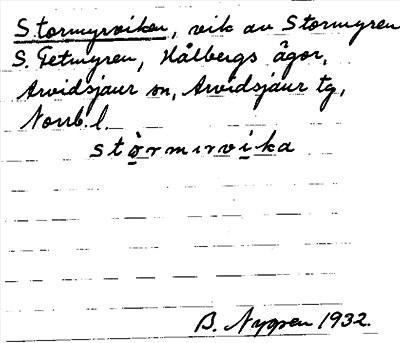 Stormyrviken, vik av Stormyren
S. Getmyren, Hålbergs ägor,
Arvidsjaur sn, Arvidsjaur tg,
Norrb. l.
stòrmırvìka
B. Nygren 1932.